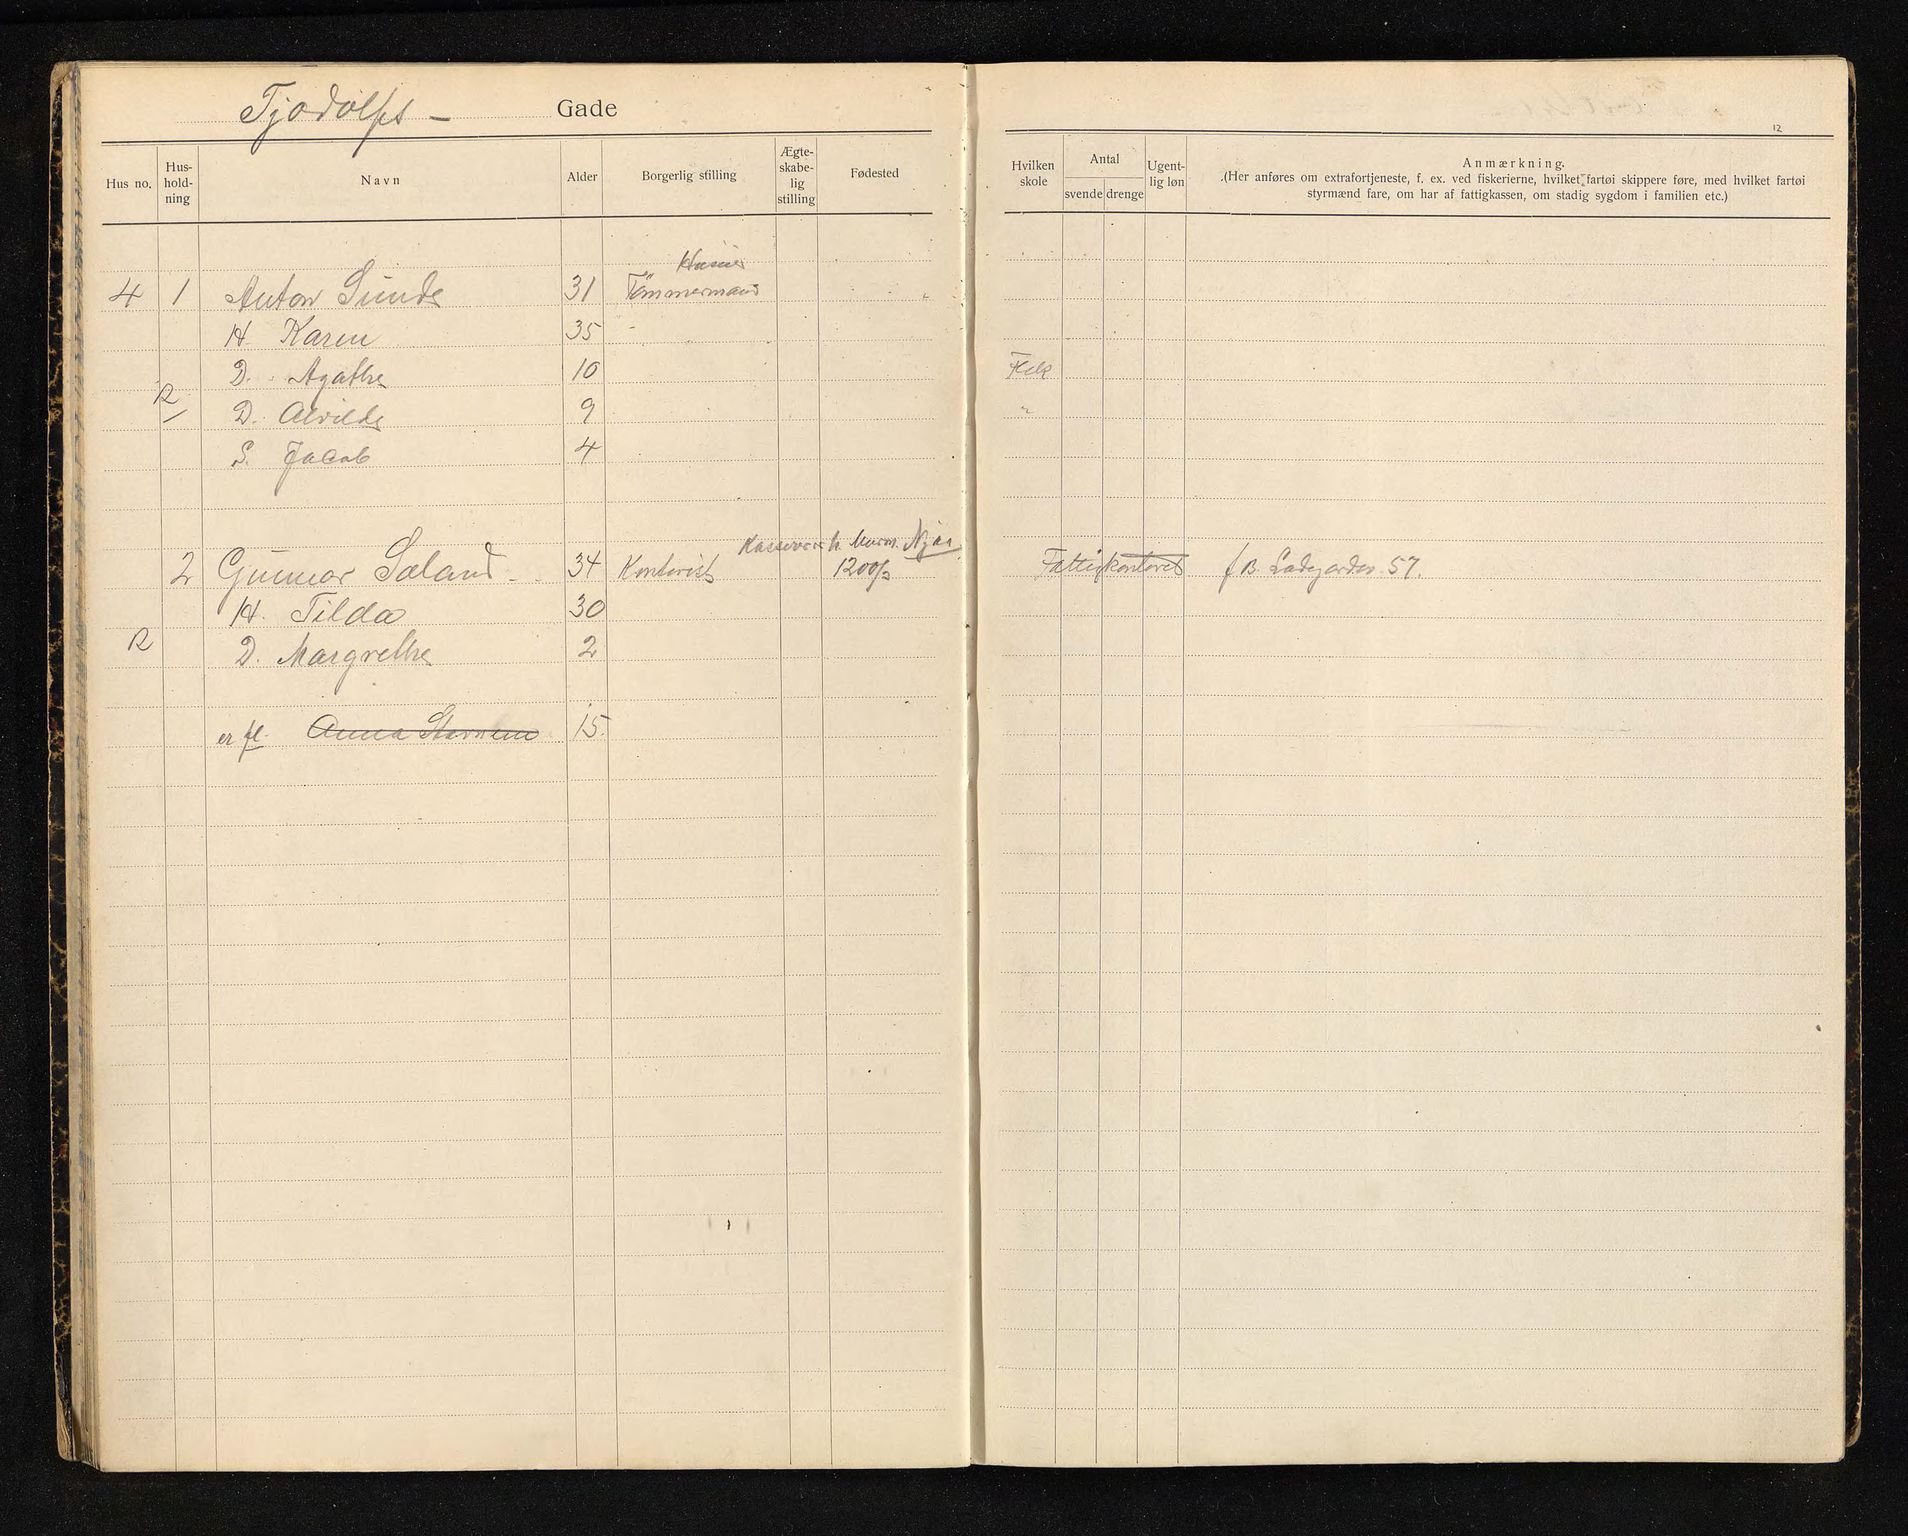 Tjodolfs – Gade
12
Hus no. Hus-hold-ning Navn Alder Borgerlig stilling Ægte-skabe-lig stilling Fødested Hvilken skole Antal svende drenge Ugent-lig løn Anmærkning.
(Her anføres om extrafortjeneste, f. ex. ved fiskerierne, hvilket fartøi skippere føre, med hvilket fartøi
styrmænd fare, om har af fattigkassen, om stadig sygdom i familien etc.)
4 1 Anton Sunde 31 Tömmermand
H Karen 35
D. Agathe 10 Folk
R D. Alvilde 9 "
S. Jacob 4
2 Gunnar Søland 34 Kontorist 1200/- Fattigkontoret f B. Ladegardsv. 57.
H. Tilda 30
R D. Margrethe 2
er fl. Anna 15.